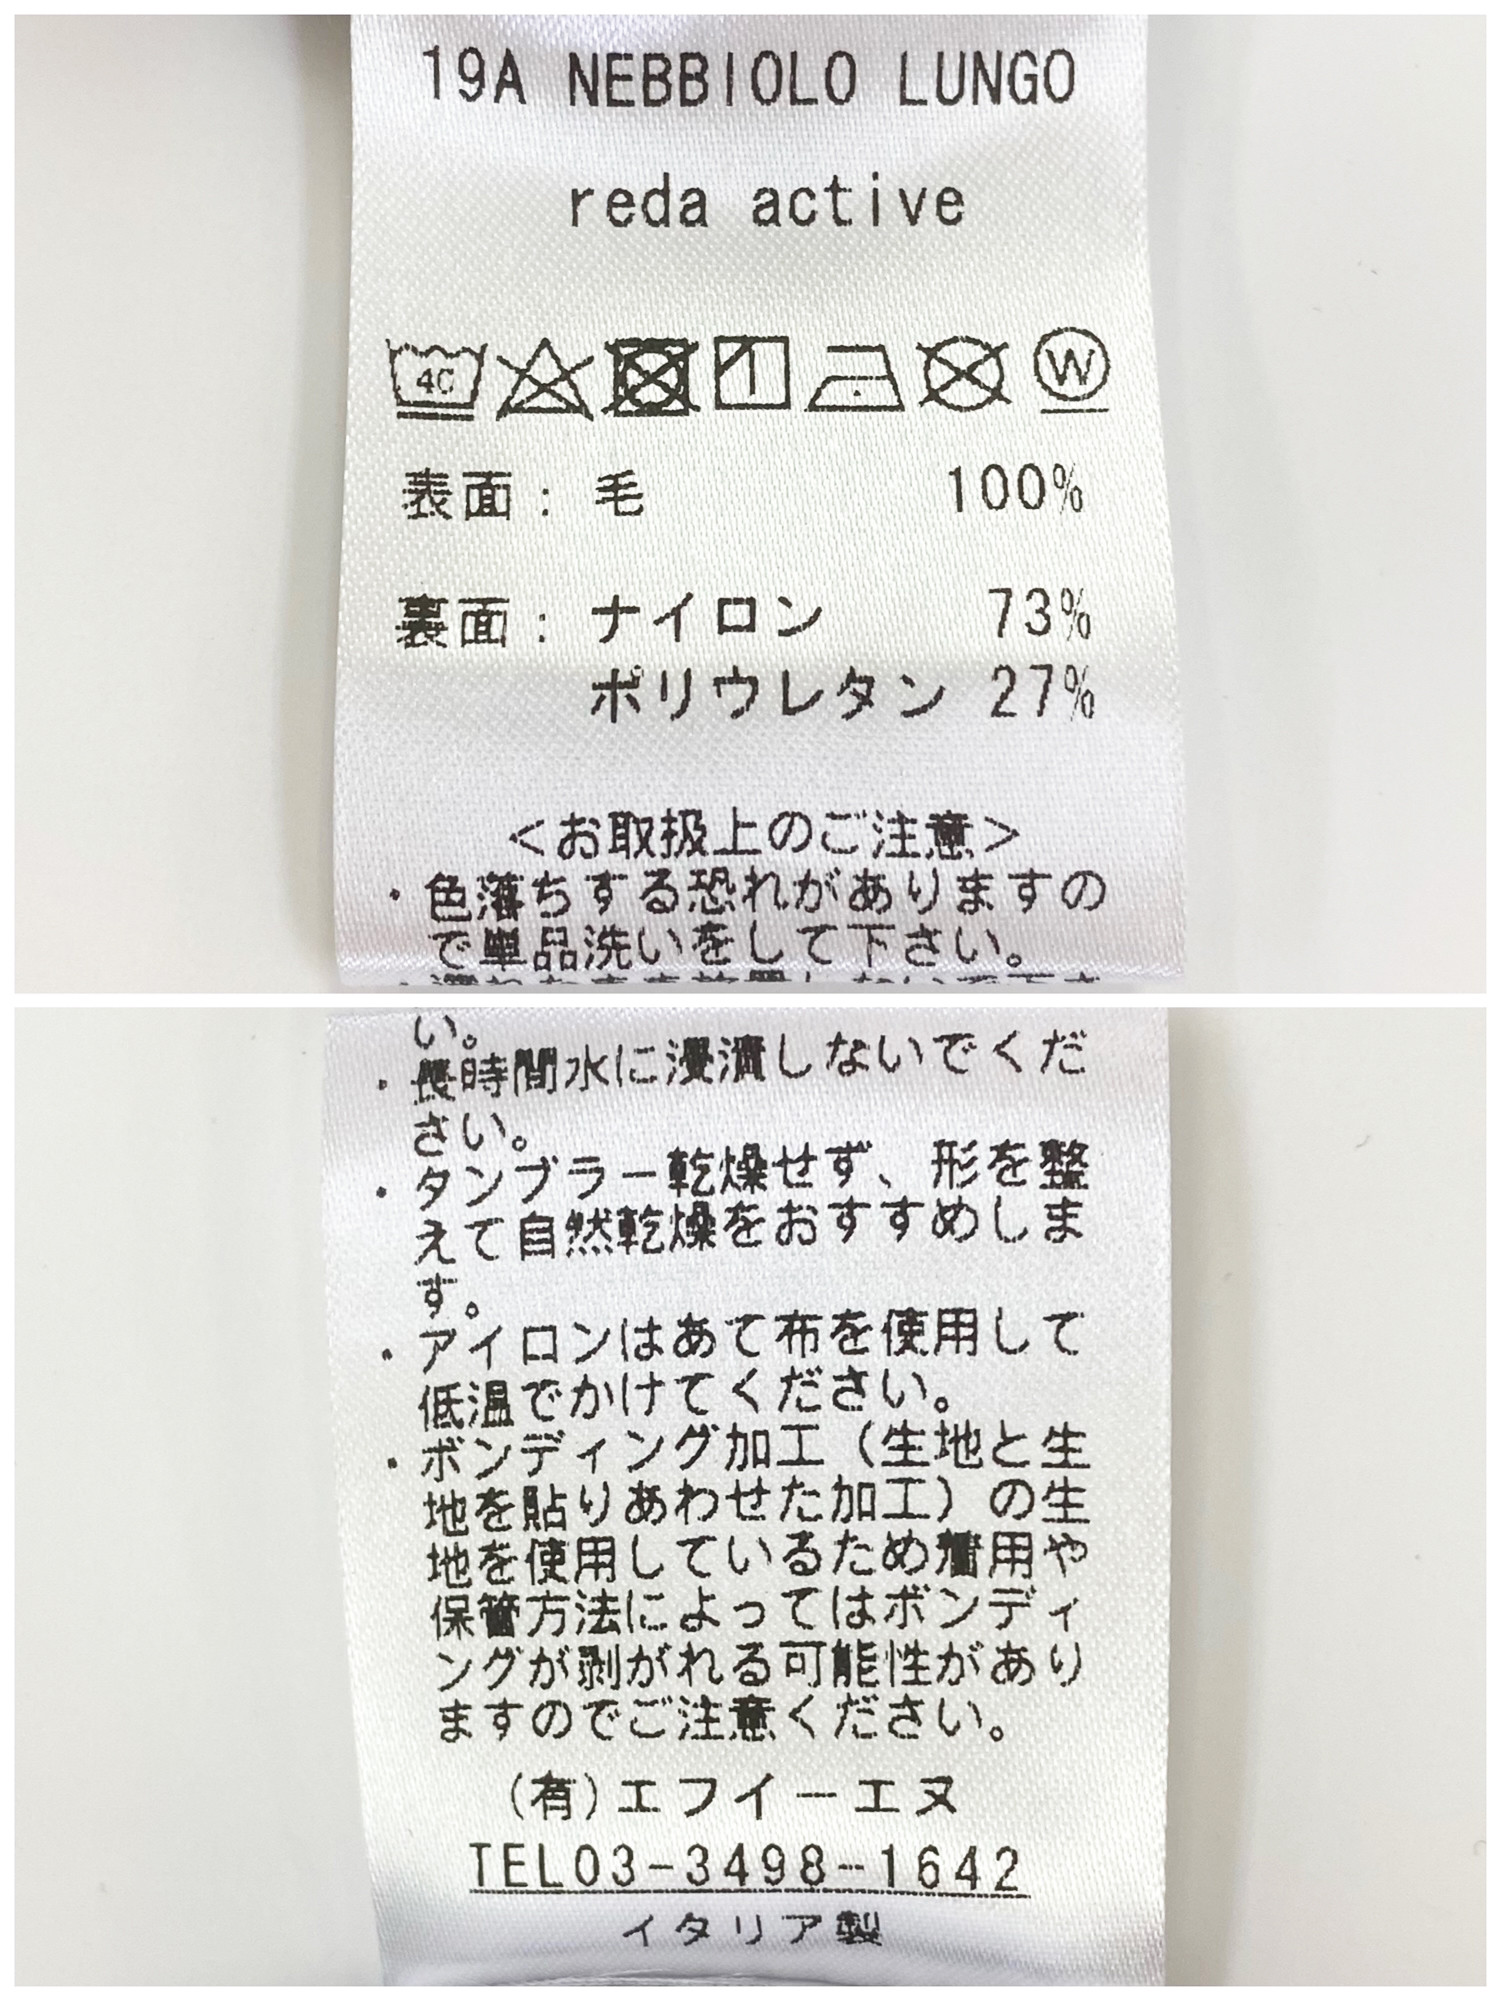 19A NEBBIOLO LUNGO
reda active
40
W
表面: 毛 100%
裏面: ナイロン 73%
ポリウレタン 27%
<お取扱上のご注意>
・色落ちする恐れがありますの
で単品洗いをして下さい。
い。
・長時間水に浸漬しないでくだ
さい。
・タンブラー乾燥せず、形を整
えて自然乾燥をおすすめしま
す。
・アイロンはあて布を使用して
低温でかけてください。
・ボンディング加工（生地と生
地を貼りあわせた加工）の生
地を使用しているため着用や
保管方法によってはボンディ
ングが剥がれる可能性があり
ますのでご注意ください。
(有)エフイーエヌ
TEL03-3498-1642
イタリア製